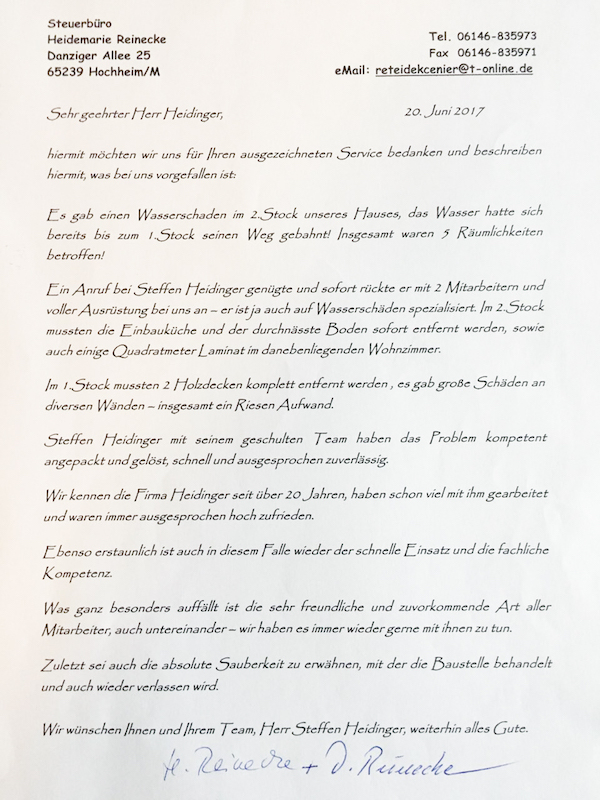 Steuerbüro
Heidemarie Reinecke
Danziger Allee 25
65239 Hochheim/M
Tel. 06146-835973
Fax 06146-835971
eMail: reteidekcenier@t-online.de
Sehr geehrter Herr Heidinger,
20. Juni 2017
hiermit möchten wir uns für Ihren ausgezeichneten Service bedanken und beschreiben
hiermit, was bei uns vorgefallen ist:
Es gab einen Wasserschaden im 2.Stock unseres Hauses, das Wasser hatte sich
bereits bis zum 1.Stock seinen Weg gebahnt! Insgesamt waren 5 Räumlichkeiten
betroffen!
Ein Anruf bei Steffen Heidinger genügte und sofort rückte er mit 2 Mitarbeitern und
voller Ausrüstung bei uns an – er ist ja auch auf Wasserschäden spezialisiert. Im 2.Stock
mussten die Einbauküche und der durchnässte Boden sofort entfernt werden, sowie
auch einige Quadratmeter Laminat im danebenliegenden Wohnzimmer.
Im 1.Stock mussten 2 Holzdecken komplett entfernt werden , es gab große Schäden an
diversen Wänden – insgesamt ein Riesen Aufwand.
Steffen Heidinger mit seinem geschulten Team haben das Problem kompetent
angepackt und gelöst, schnell und ausgesprochen zuverlässig.
Wir kennen die Firma Heidinger seit über 20 Jahren, haben schon viel mit ihm gearbeitet
und waren immer ausgesprochen hoch zufrieden.
Ebenso erstaunlich ist auch in diesem Falle wieder der schnelle Einsatz und die fachliche
Kompetenz.
Was ganz besonders auffällt ist die sehr freundliche und zuvorkommende Art aller
Mitarbeiter, auch untereinander – wir haben es immer wieder gerne mit ihnen zu tun.
Zuletzt sei auch die absolute Sauberkeit zu erwähnen, mit der die Baustelle behandelt
und auch wieder verlassen wird.
Wir wünschen Ihnen und Ihrem Team, Herr Steffen Heidinger, weiterhin alles Gute.
H. Reinecke + D. Reinecke